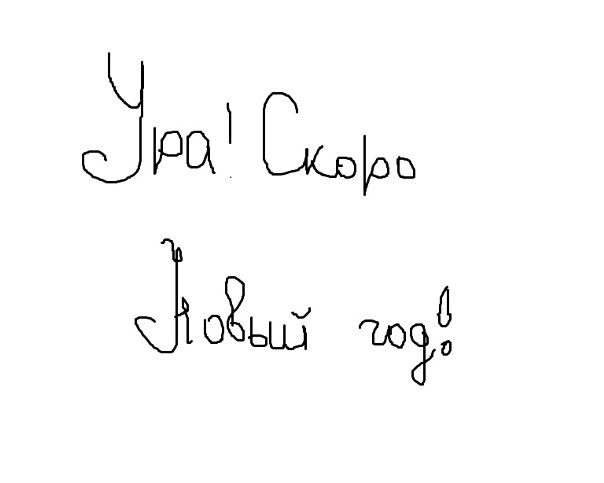 Ура! Скоро
Новый год!